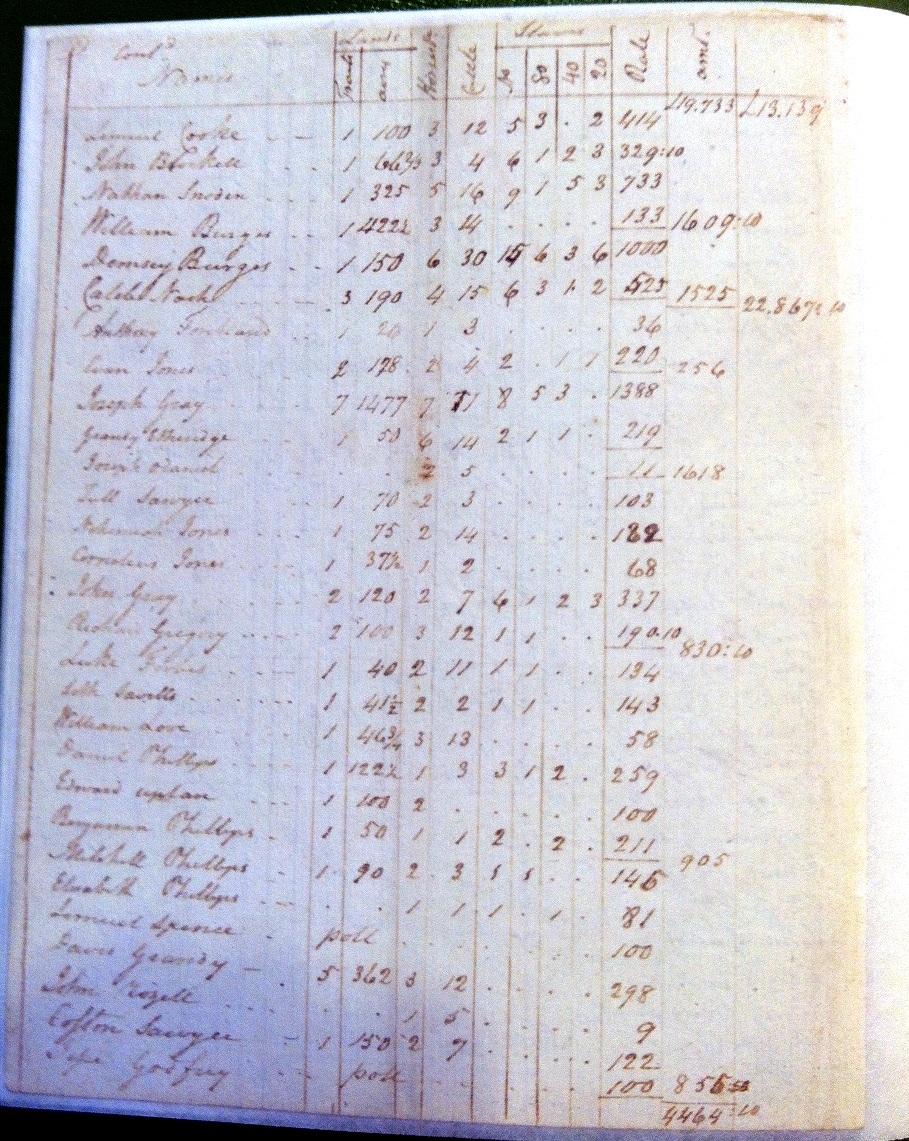 Cont.d Lands Slaves
Names Tracts acres Horses Cattle No 80 40 20 Rate amt.
£19.733 £13.13.9
Lemuel Cooke 1 100 3 12 5 3 . 2 414
John 1 66 2/3 3 4 6 1 2 3 329:10
Nathan Snoden 1 325 5 16 9 1 5 3 733
William Burges 1 422½ 3 14 . . . . 133 1609:10
Demsey Burges 1 150 6 30 15 6 3 6 1000
Caleb Nash 3 190 4 15 6 3 1 2 525 1525 22.867: 10
Anthony 1 20 1 3 . . . . 36
Evan Jones 2 178 2 4 2 . 1 1 220 256
Joseph Gray 7 1477 7 71 8 5 3 . 1388
Grandy Etheridge 1 50 6 14 2 1 1 . 219
Joseph . . 2 5 . . . . 11 1618
Tull Sawyer 1 70 2 3 . . . . 103
Nehemiah Jones 1 75 2 14 . . . . 182
Cornelius Jones 1 37½ 1 2 . . . . 68
John Gray 2 120 2 7 6 1 2 3 337
Gregory 2 100 3 12 1 1 . . 190.10 830:10
Luke 1 40 2 11 1 1 . . 134
Seth Sawells 1 41½ 2 2 1 1 . . 143
William Love 1 46¾ 3 13 . . . . 58
Daniel Phillips 1 122½ 1 3 3 1 2 . 259
Edward upton 1 100 2 . . . . . 100
Benjamin Phillips 1 50 1 1 2 . 2 . 211 905
Mitchell Phillips 1 90 2 3 1 1 . . 146
Elizabeth Phillips . . 1 1 1 . 1 . 81
Lemuel Spence poll . . . . . . 100
Davis Grandy 5 362 3 12 . . . . 298
John . . 1 5 . . . . 9
Cofton Sawyer 1 150 2 7 . . . . 122
Tepe Godfrey poll . . . . . . 100 856
4464:10